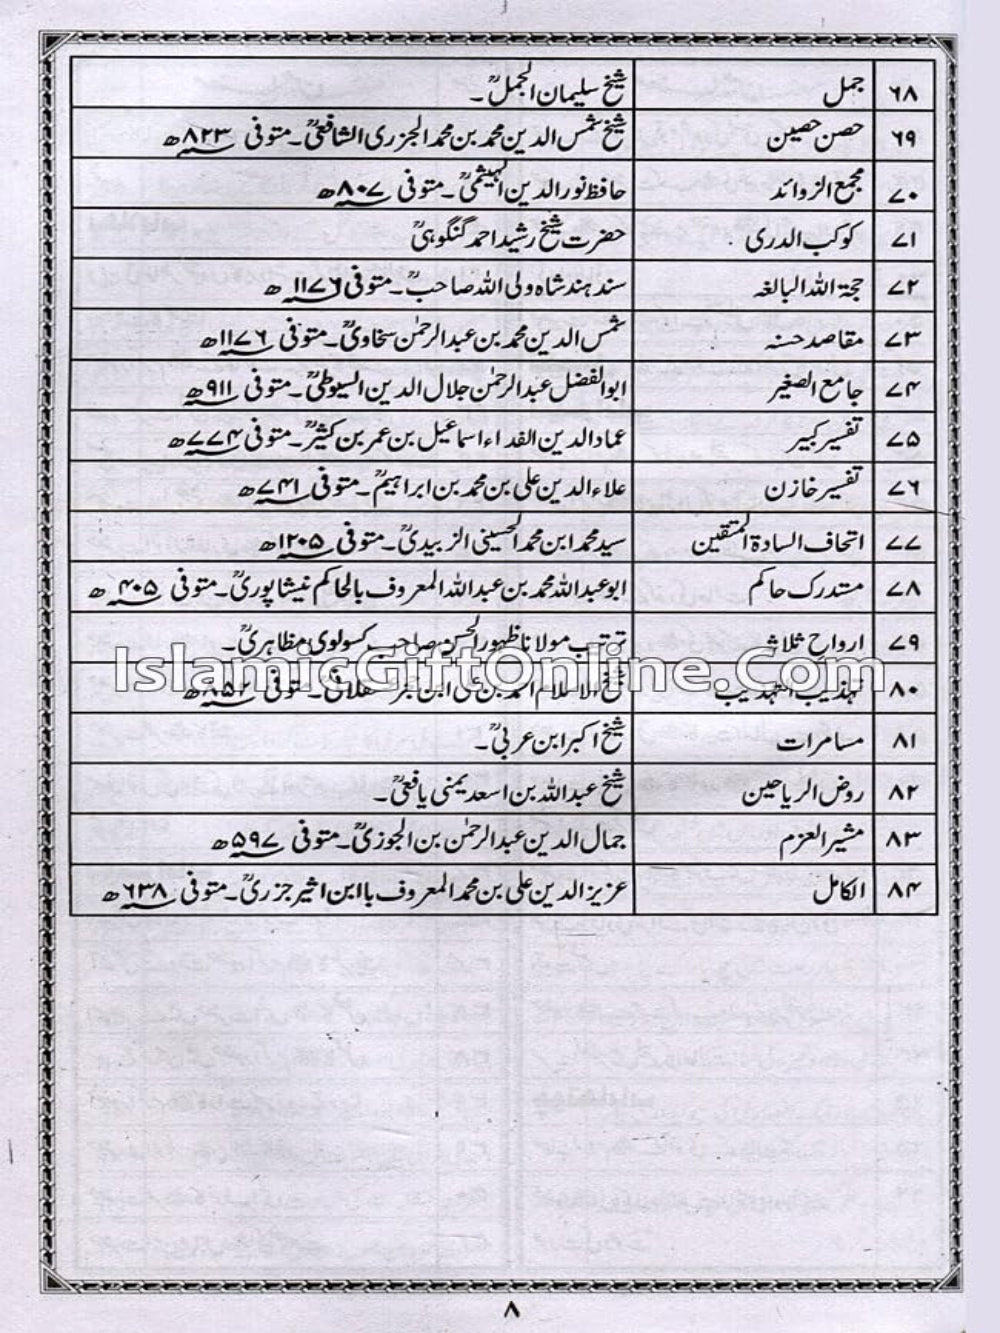 ۶۸ جمل شیخ سلیمان الجملؒ۔
۶۹ حصن حصین شیخ شمس الدین محمد بن محمد الجزری الشافعیؒ۔ متوفی ۸۲۳ھ
۷۰ مجمع الزوائد حافظ نور الدین الہیثمیؒ۔ متوفی ۸۰۷ھ
۷۱ کوکب الدری حضرت شیخ رشید احمد گنگوہیؒ
۷۲ حجۃ اللہ البالغہ سند ہند شاہ ولی اللہ صاحبؒ۔ متوفی ۱۱۷۶ھ
۷۳ مقاصد حسنہ شمس الدین محمد بن عبد الرحمٰن سخاویؒ۔ متوفی ۱۱۷۶ھ
۷۴ جامع الصغیر ابوالفضل عبد الرحمٰن جلال الدین السیوطیؒ۔ متوفی ۹۱۱ھ
۷۵ تفسیر کبیر عماد الدین الفداء اسماعیل بن عمر بن کثیرؒ۔ متوفی ۷۷۴ھ
۷۶ تفسیر خازن علاء الدین علی بن محمد بن ابراہیمؒ۔ متوفی ۷۴۱ھ
۷۷ اتحاف السادۃ المتقین سید محمد ابن محمد الحسینی الزبیدیؒ۔ متوفی ۱۲۰۵ھ
۷۸ مستدرک حاکم ابو عبد اللہ محمد بن عبد اللہ المعروف بالحاکم نیشاپوریؒ۔ متوفی ۴۰۵ھ
۷۹ ارواح ثلاثہ ترتیب مولانا ظہور الحسن صاحب کسولوی مظاہریؒ۔
IslamicGiftOnline.Com
۸۰ تہذیب التہذیب شیخ الاسلام احمد بن علی ابن حجر عسقلانیؒ۔ متوفی ۸۵۲ھ
۸۱ مسامرات شیخ اکبر ابن عربیؒ۔
۸۲ روض الریاحین شیخ عبد اللہ بن اسعد یمنی یافعیؒ۔
۸۳ مشیر العزم جمال الدین عبد الرحمٰن بن الجوزیؒ۔ متوفی ۵۹۷ھ
۸۴ الکامل عزیز الدین علی بن محمد المعروف باابن اثیر جزریؒ۔ متوفی ۶۳۸ھ
۸